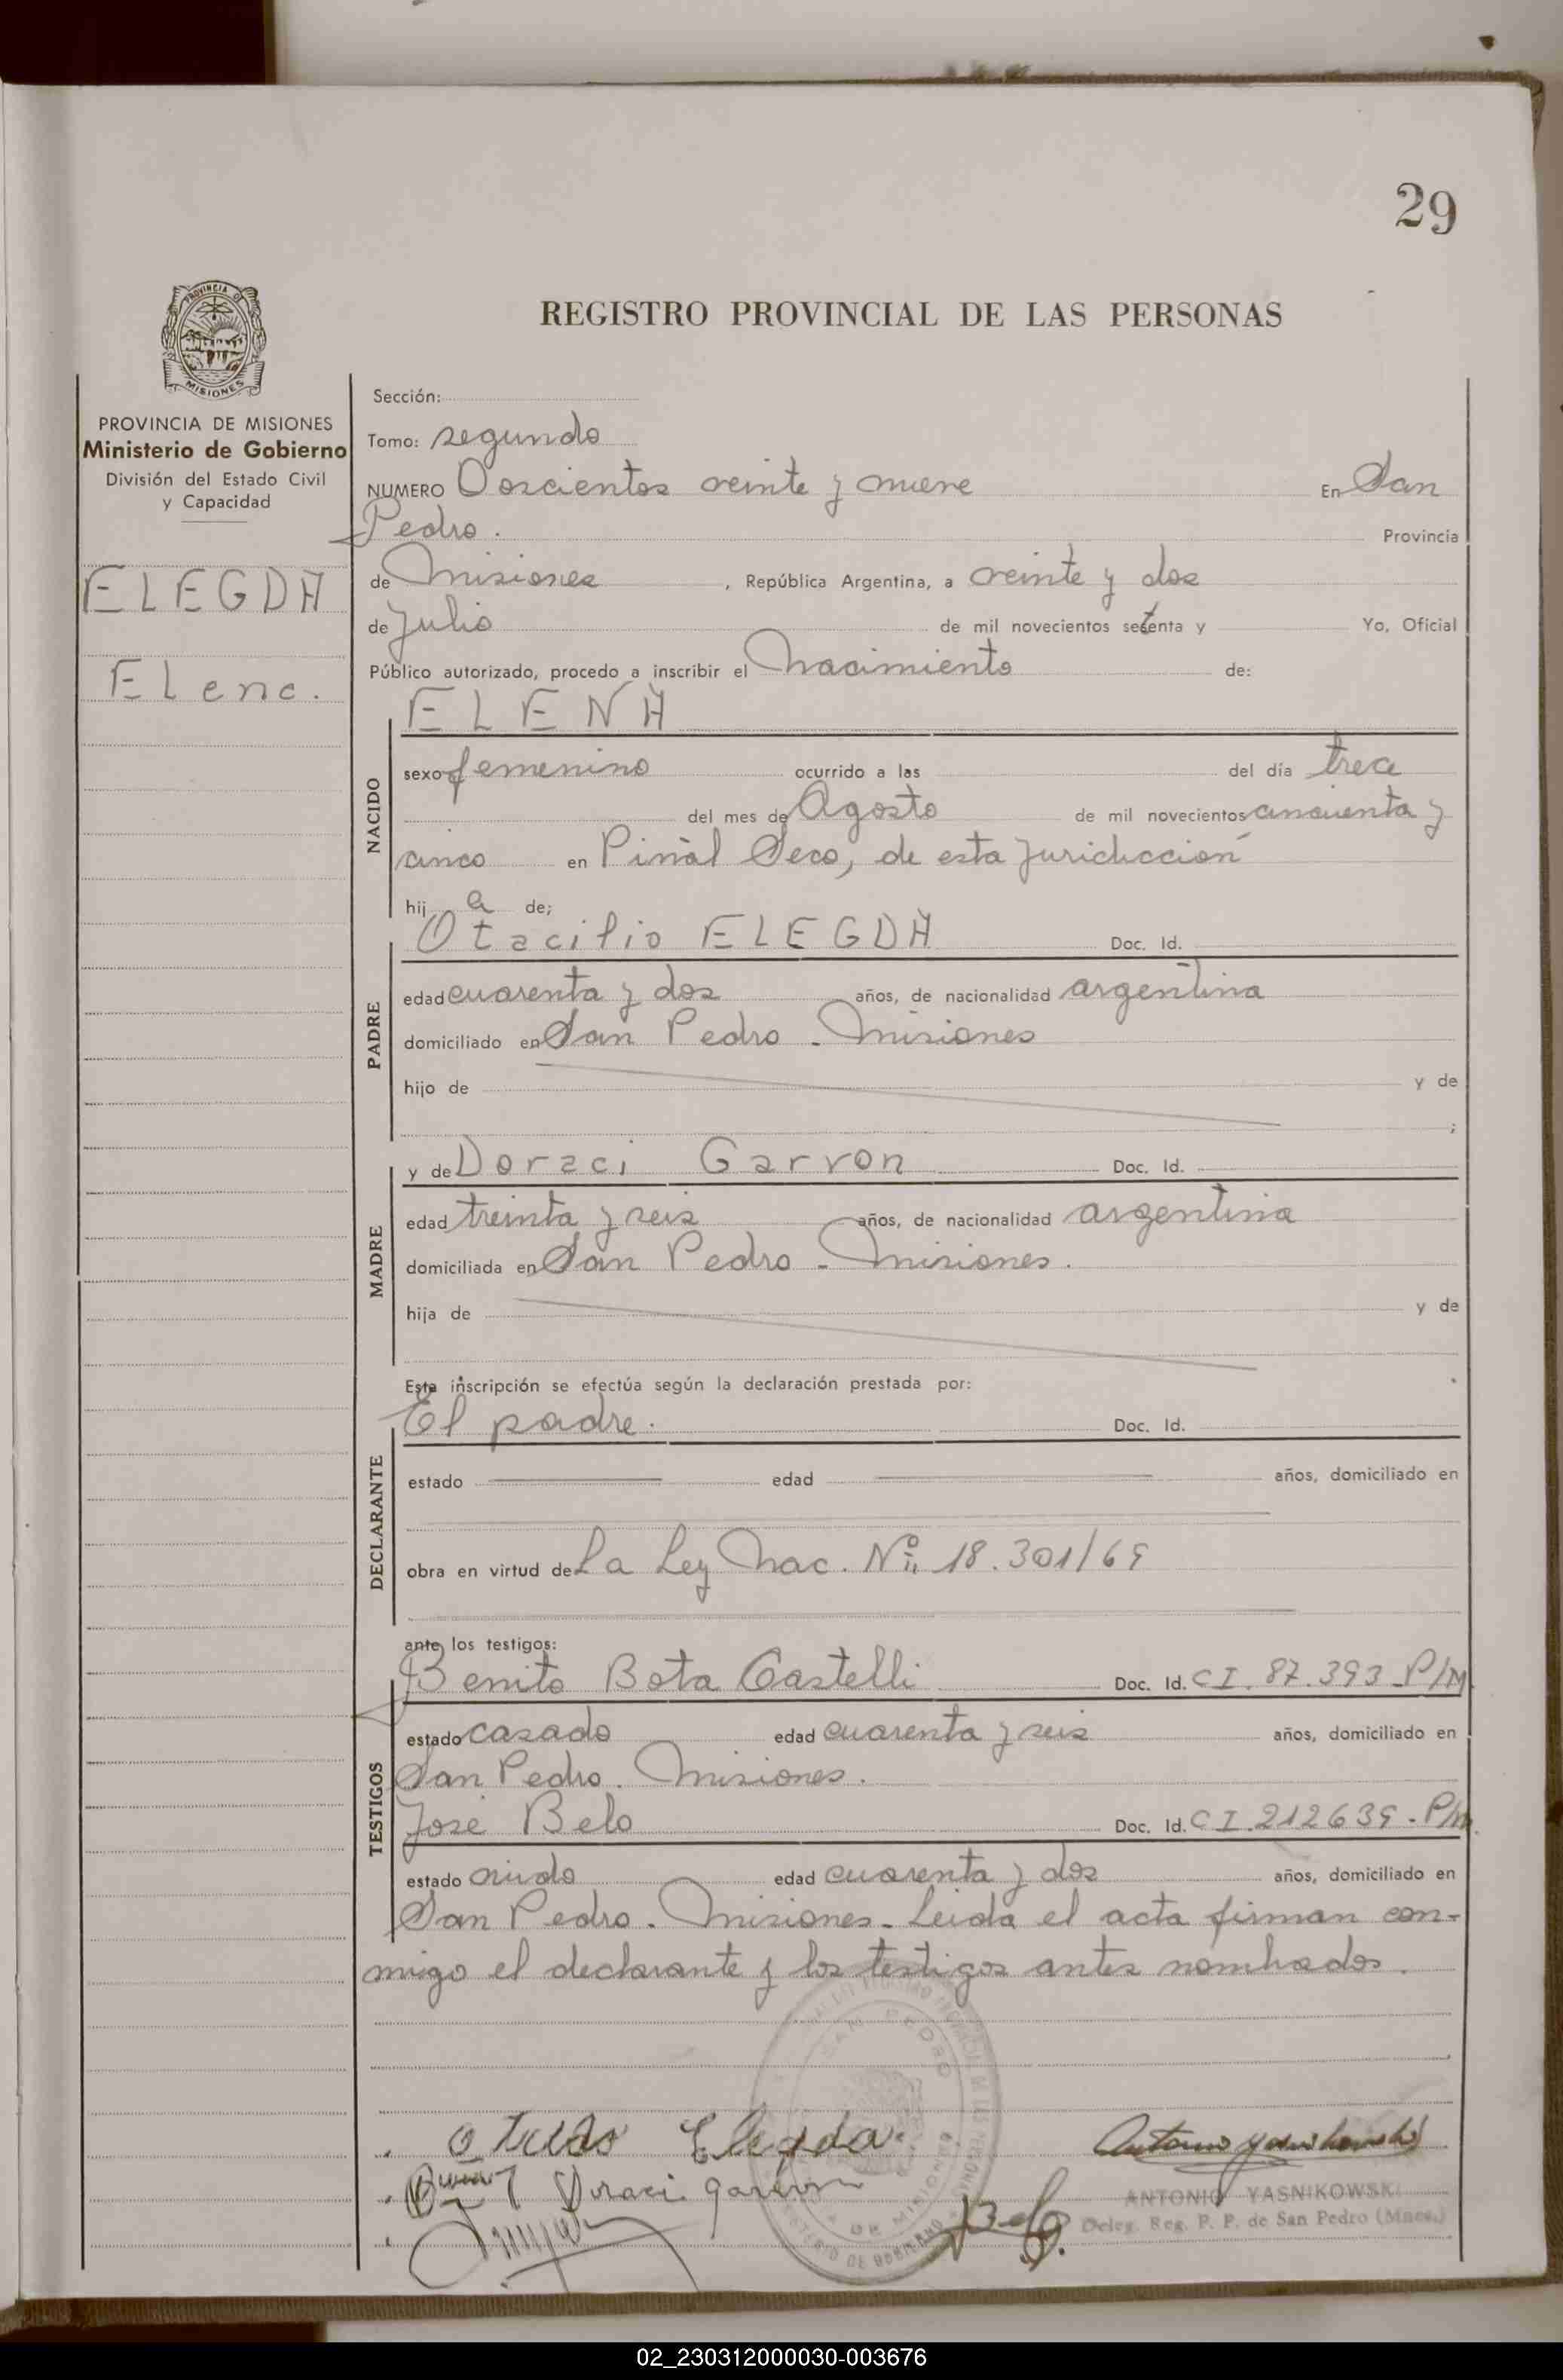 29
PROVINCIA DE
MISIONES
REGISTRO PROVINCIAL DE LAS PERSONAS
PROVINCIA DE MISIONES
Ministerio de Gobierno
División del Estado Civil
y Capacidad
ELEGDA
Elena.
Sección:
Tomo: segundo
NUMERO Doscientos veinte y nueve En San
Pedro. Provincia
de Misiones, República Argentina, a veinte y dos
de Julio de mil novecientos setenta y Yo, Oficial
Público autorizado, procedo a inscribir el Nacimiento de:
NACIDO
ELENA
sexo femenino ocurrido a las del día trece
del mes de Agosto de mil novecientos cincuenta y
cinco en Pinal Seco, de esta Juridiccion
hij a de;
PADRE
Otacilio ELEGDA Doc. Id.
edad cuarenta y dos años, de nacionalidad argentina
domiciliado en San Pedro - Misiones
hijo de y de
;
MADRE
y de Doraci Garron Doc. Id.
edad treinta y seis años, de nacionalidad argentina
domiciliada en San Pedro - Misiones.
hija de y de
Esta inscripción se efectúa según la declaración prestada por:
DECLARANTE
El padre. Doc. Id.
estado edad años, domiciliado en
obra en virtud de La Ley Nac. Nº 18.301/69
ante los testigos:
TESTIGOS
Benito Bota Castelli Doc. Id. CI. 87.393 - P/M
estado casado edad cuarenta y seis años, domiciliado en
San Pedro. Misiones.
José Belo Doc. Id. CI. 212639 - P/M.
estado viudo edad cuarenta y dos años, domiciliado en
San Pedro - Misiones - Leida el acta firman con-
migo el declarante y los testigos antes nombrados.
SAN PEDRO
MINISTERIO DE GOBIERNO
Elegda
Antonio Yasnikowski
Doraci Garron
Belo
ANTONIO YASNIKOWSKI
Deleg. Reg. P. P. de San Pedro (Mnes.)
02_230312000030-003676